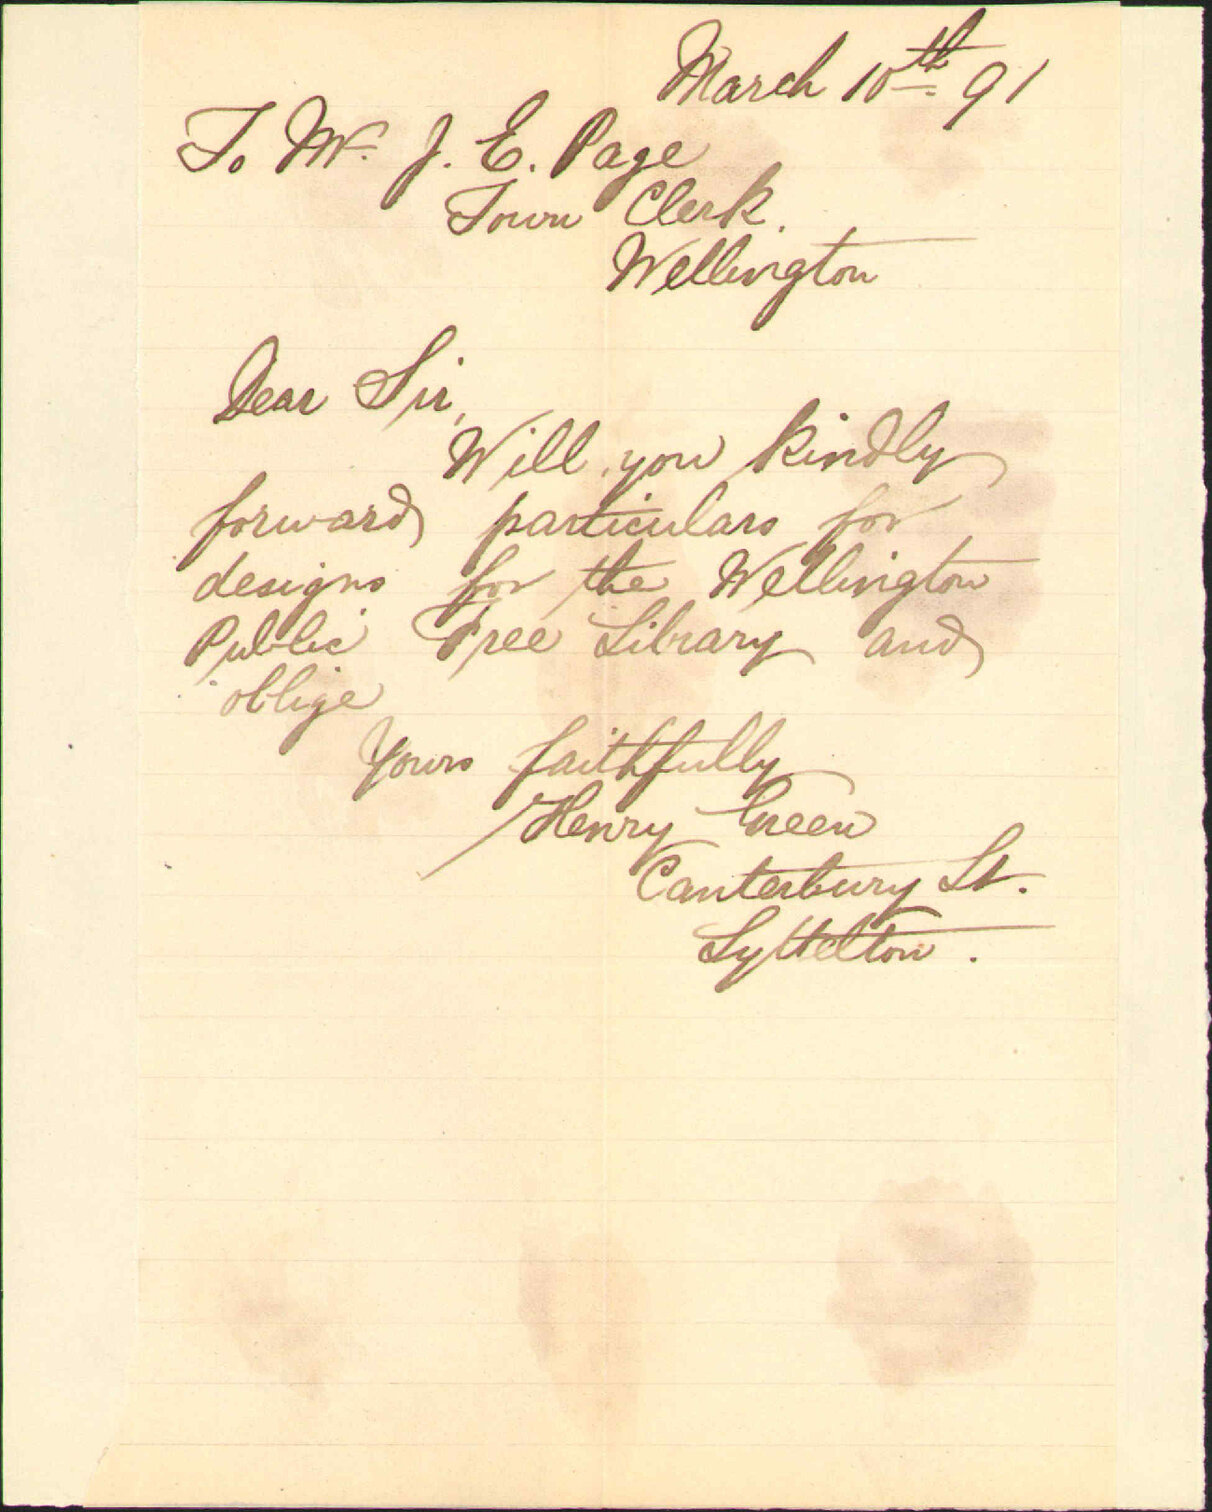 March 10th 91
To Mr. J. E. Page
Town Clerk.
Wellington
Dear Sir,
Will you kindly
forward particulars for
designs for the Wellington
Public Free Library and
oblige
Yours faithfully
Henry Green
Canterbury St.
Lyttelton.